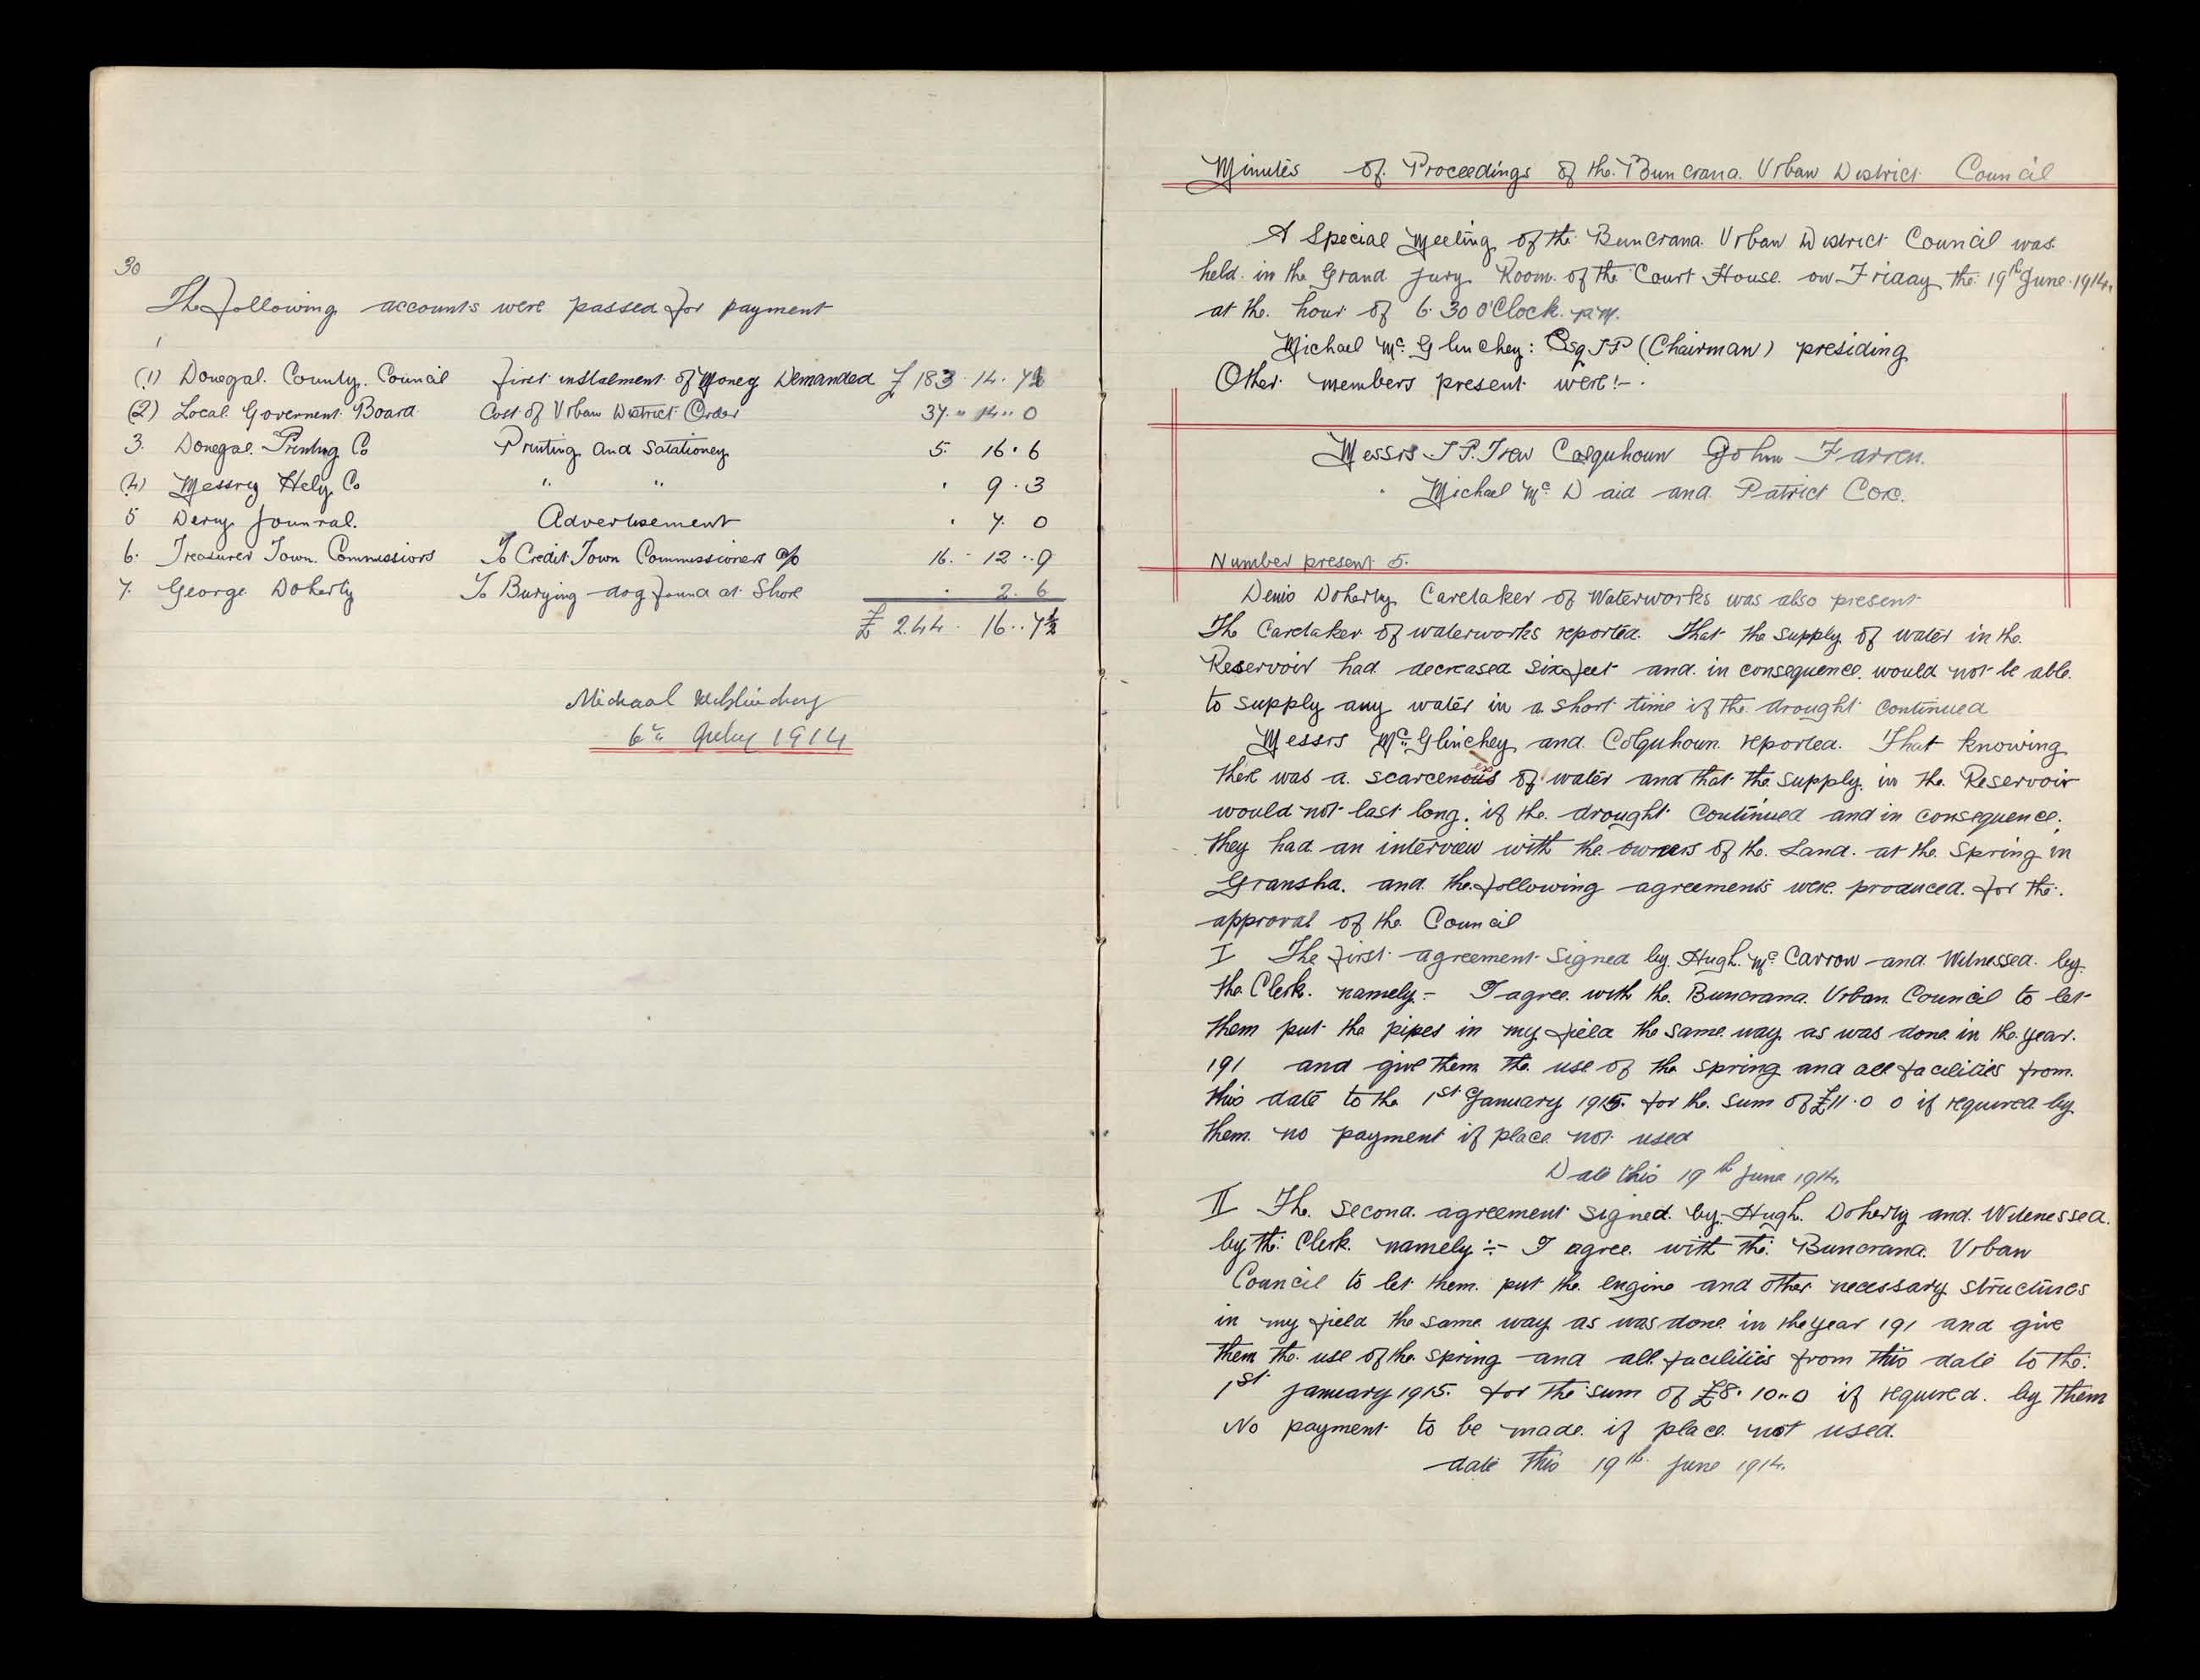 30
The following accounts were passed for payment
(1) Donegal County Council first instalment of Money Demanded £ 183 . 14 . 7½
(2) Local Goverment Board Cost of Urban District Order 37 .. 14 .. 0
3. Donegal Printing Co Printing and Satationey 5. 16 . 6
(4) Messrs Hely Co " " . 9 . 3
5 Derry Jounral. Advertisement . 7. 0
6. Treasurer Town Commissiors To Credit Town Commissioners a/c 16. 12 .. 9
7. George Doherty To Burying dog found at Shore . 2. 6
£ 244 . 16 .. 7½
Michael McGlinchey
6th July 1914
Minutes of Proceedings of the Buncrana Urban District Council
A Special Meeting of the Buncrana Urban District Council was
held in the Grand Jury Room of the Court House on Friday the 19th June 1914.
at the hour of 6.30 O'Clock. P.M.
Michael Mc Glinchey: Esq JP (Chairman) presiding
Other members present were:-.
Messrs J P. Trew Colquhoun John Farren.
Michael Mc Daid and Patrict Cox.
Number present 5.
Denis Doherty Caretaker of Waterworks was also present
The Caretaker of waterworks reported. That the supply of water in the
Reservoir had decreased six feet and in consequence would not be able
to supply any water in a short time if the drought continued
Messrs Mc Glinchey and Colquhoun reported. That knowing
there was a scarceness of water and that the supply in the Reservoir
would not last long. if the drought Continued and in consequence.
they had an interview with the owners of the Land at the Spring in
Gransha. and the following agreements were produced for the
approval of the Council
I The first agreement Signed by Hugh Mc Carrow and Witnessed by
the Clerk. namely - I agree with the Buncrana Urban Council to let
them put the pipes in my field the same way as was done in the year.
191 and give them the use of the spring and all facilities from
this date to the 1st January 1915. for the sum of £11 . 0 0 if required by
them no payment if place not used
Date this 19th June 1914.
II The second agreement signed by Hugh Doherty and Witenessed
by the Clerk. namely :- I agree with the Buncrana Urban
Council to let them put the engine and other necessary structures
in my field the same way as was done in the year 191 and give
them the use of the spring and all facilities from this date to the
1st January 1915. for the sum of £8. 10 .. 0 if required by them
No payment to be made if place not used.
date this 19th June 1914.